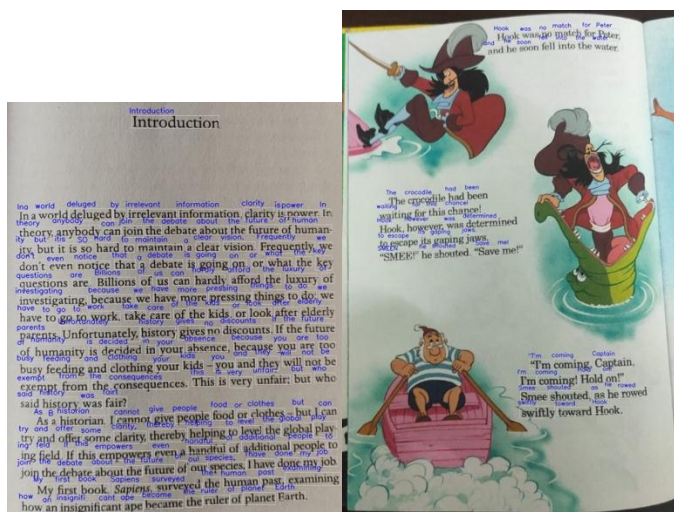 Introduction
In a world deluged by irrelevant information, clarity is power. In
theory, anybody can join the debate about the future of human-
ity, but it is so hard to maintain a clear vision. Frequently, we
don't even notice that a debate is going on, or what the key
questions are. Billions of us can hardly afford the luxury of
investigating, because we have more pressing things to do: we
have to go to work, take care of the kids, or look after elderly
parents. Unfortunately, history gives no discounts. If the future
of humanity is decided in your absence, because you are too
busy feeding and clothing your kids – you and they will not be
exempt from the consequences. This is very unfair; but who
said history was fair?
As a historian, I cannot give people food or clothes – but I can
try and offer some clarity, thereby helping to level the global play-
ing field. If this empowers even a handful of additional people to
join the debate about the future of our species, I have done my job.
My first book, Sapiens, surveyed the human past, examining
how an insignificant ape became the ruler of planet Earth.
Hook was no match for Peter,
and he soon fell into the water.
The crocodile had been
waiting for this chance!
Hook, however, was determined
to escape its gaping jaws.
"SMEE!" he shouted. "Save me!"
"I'm coming, Captain.
I'm coming! Hold on!"
Smee shouted, as he rowed
swiftly toward Hook.